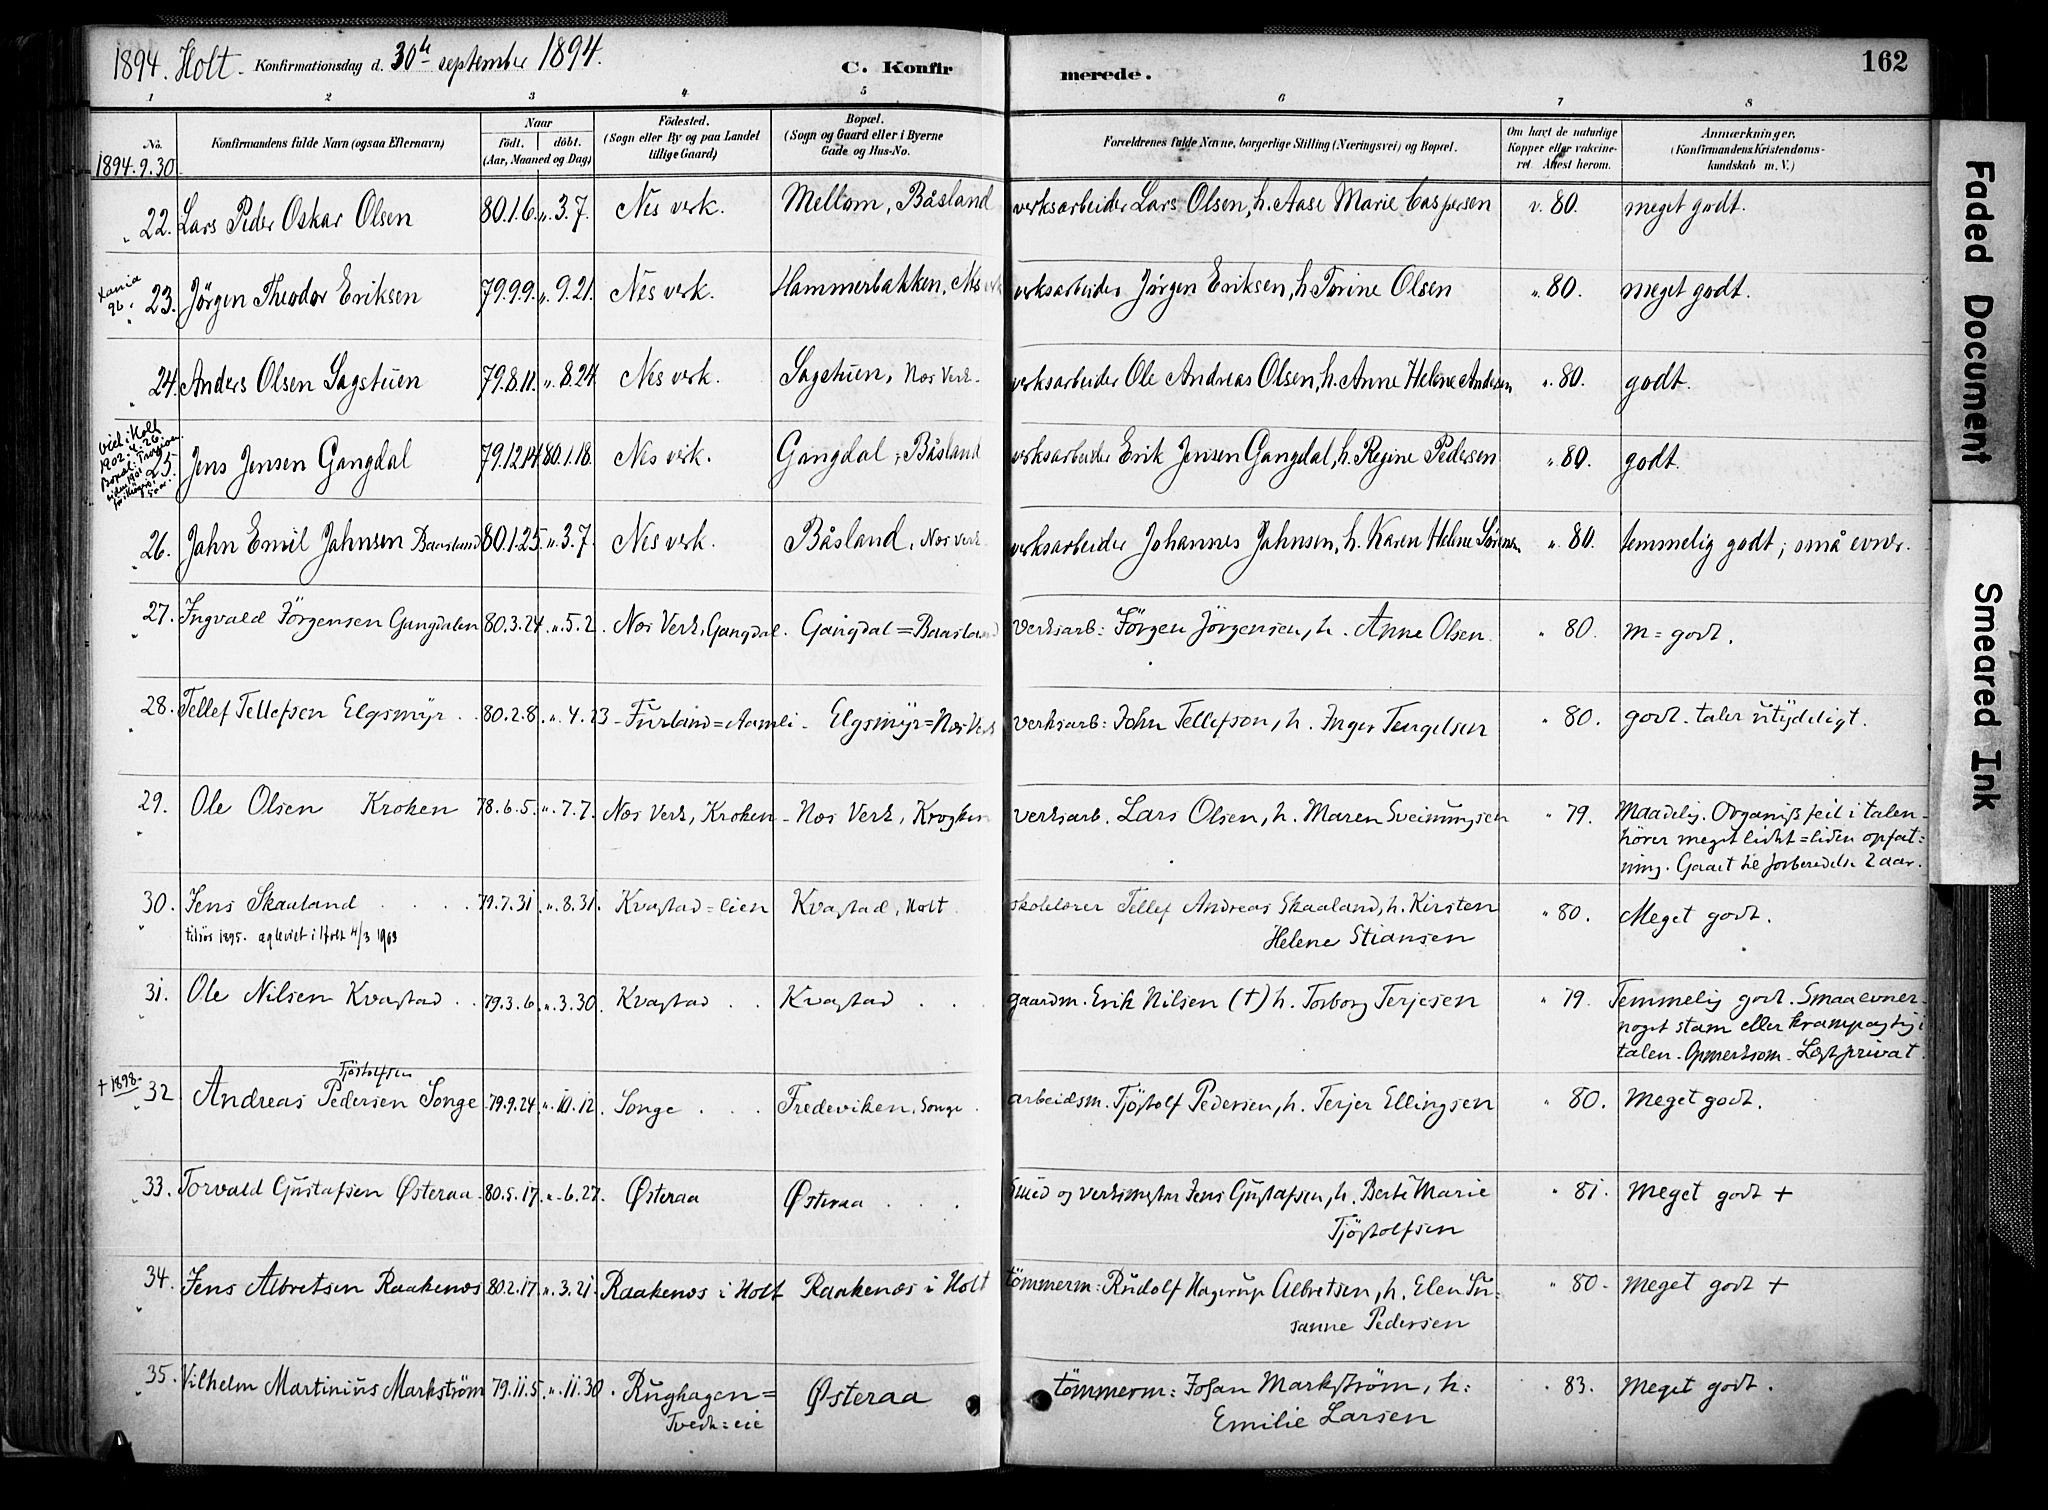 1894. Holt. Konfirmationsdag d. 30te september 1894.
C. Konfirmerede.
162
1 2 3 4 5 6 7 8
No.
Konfirmandens fulde Navn (ogsaa Efternavn)
Naar
födt. döbt.
(Aar, Maaned og Dag)
Födested.
(Sogn eller By og paa Landet
tillige Gaard)
Bopæl.
(Sogn og Gaard eller i Byerne
Gade og Hus-No.
Forældrenes fulde Navne, borgerlige Stilling (Næringsvei) og Bopæl.
Om havt de naturlige
Kopper eller vakcine-
ret. Attest herom.
Anmærkninger.
(Konfirmandens Kristendoms-
kundskab m. V.)
1894.9.30
" 22. Lars Peder Oskar Olsen 80.1.6. ". 3.7. Nes verk. Mellom, Båsland verksarbeider Lars Olsen, h. Aase Marie Caspersen v. 80. meget godt.
" 23. Jörgen Theodor Eriksen 79.9.9. ". 9.21. Nes verk. Hammerbakken, Nes verk verksarbeider Jörgen Eriksen, h Torine Olsen ". 80. meget godt.
96.
" 24. Anders Olsen Sagstuen 79.8.11. ". 8.24. Nes verk. Sagstuen, Nes Verk. verksarbeider Ole Andreas Olsen, h. Anne Helene Andersen ". 80. godt.
viet i Holt
1902.4.26.
25. Jens Jensen Gangdal 79.12.14. 80.1.18. Nes verk. Gangdal, Båsland verksarbeider Erik Jensen Gangdal, h. Regine Pedersen ". 80. godt.
" 26. Jahn Emil Jahnsen Baasland 80.1.25. ". 3.7. Nes verk. Båsland, Nes Verk verksarbeider Johannes Jahnsen, h. Karen Helene Sörensen ". 80. temmelig godt; små evner.
" 27. Ingvald Jörgensen Gangdalen 80.3.24 ". 5.2. Nes Verk, Gangdal. Gangdal=Baasland verksarb: Jörgen Jörgensen, h. Anne Olsen. " 80. m= godt.
" 28. Tellef Tellefsen Elgsmyr . . 80.2.8. ". 4.13 - Furland=Aamli - Elgsmyr=Nes Verk verksarb: John Tellefsen, h. Inger Tergelsen " 80. godt. taler utydeligt.
" 29. Ole Olsen Kroken 78.6.5. ". 7.7. Nes Verk, Kroken - Nes Verk, Krogken verksarb. Lars Olsen, h. Maren Sveinungsen " 79. Maadelig. Organisk feil i talen-
hörer meget lidt=liden opfat=
ning. Gaaet til forberedelse 2 aar.
" 30. Jens Skaaland . . . . 79.7.31. ". 8.31. Kvastad=eien Kvastad, Holt. skolelærer Tellef Andreas Skaaland, h. Kirsten
Helene Stiansen " 80. Meget godt.
tilsös 1895. ægteviet i Holt 4/3 1903
" 31. Ole Nilsen Kvastad . . 79.3.6. ". 3.30. Kvastad . . Kvastad . . gaardm. Erik Nilsen (†) h. Torborg Terjesen " 79. Temmelig godt. Smaa evner-
noget stam eller krampagtig i
talen. Opmerksom. Læst privat.
† 1898. " 32. Andreas Pedersen Songe 79.9.24 ". 10.12. Songe . . . Fredeviken, Songe . arbeidsm. Tjöstolf Pedersen, h. Terjer Ellingsen " 80. Meget godt.
Tjöstolfsen
" 33. Torvald Gustafsen Østeraa . 80.5.17. ". 6.27. Østeraa Østeraa . . . Smed og verksmester Jens Gustafsen, h. Berte Marie
Tjöstolfsen " 81. Meget godt +
" 34. Jens Albretsen Raakenæs 80.2.17. ". 3.21. Raakenæs i Holt Raakenæs i Holt tömmerm: Rudolf Hagerup Albretsen, h. Elen Su=
sanne Pedersen " 80. Meget godt +
" 35. Vilhelm Martinius Markström 79.11.5. ". 11.30. Rughagen=
Tvedt=eie Østeraa tömmerm: Johan Markström, h:
Emilie Larsen " 83. Meget godt.
Faded Document
Smeared Ink